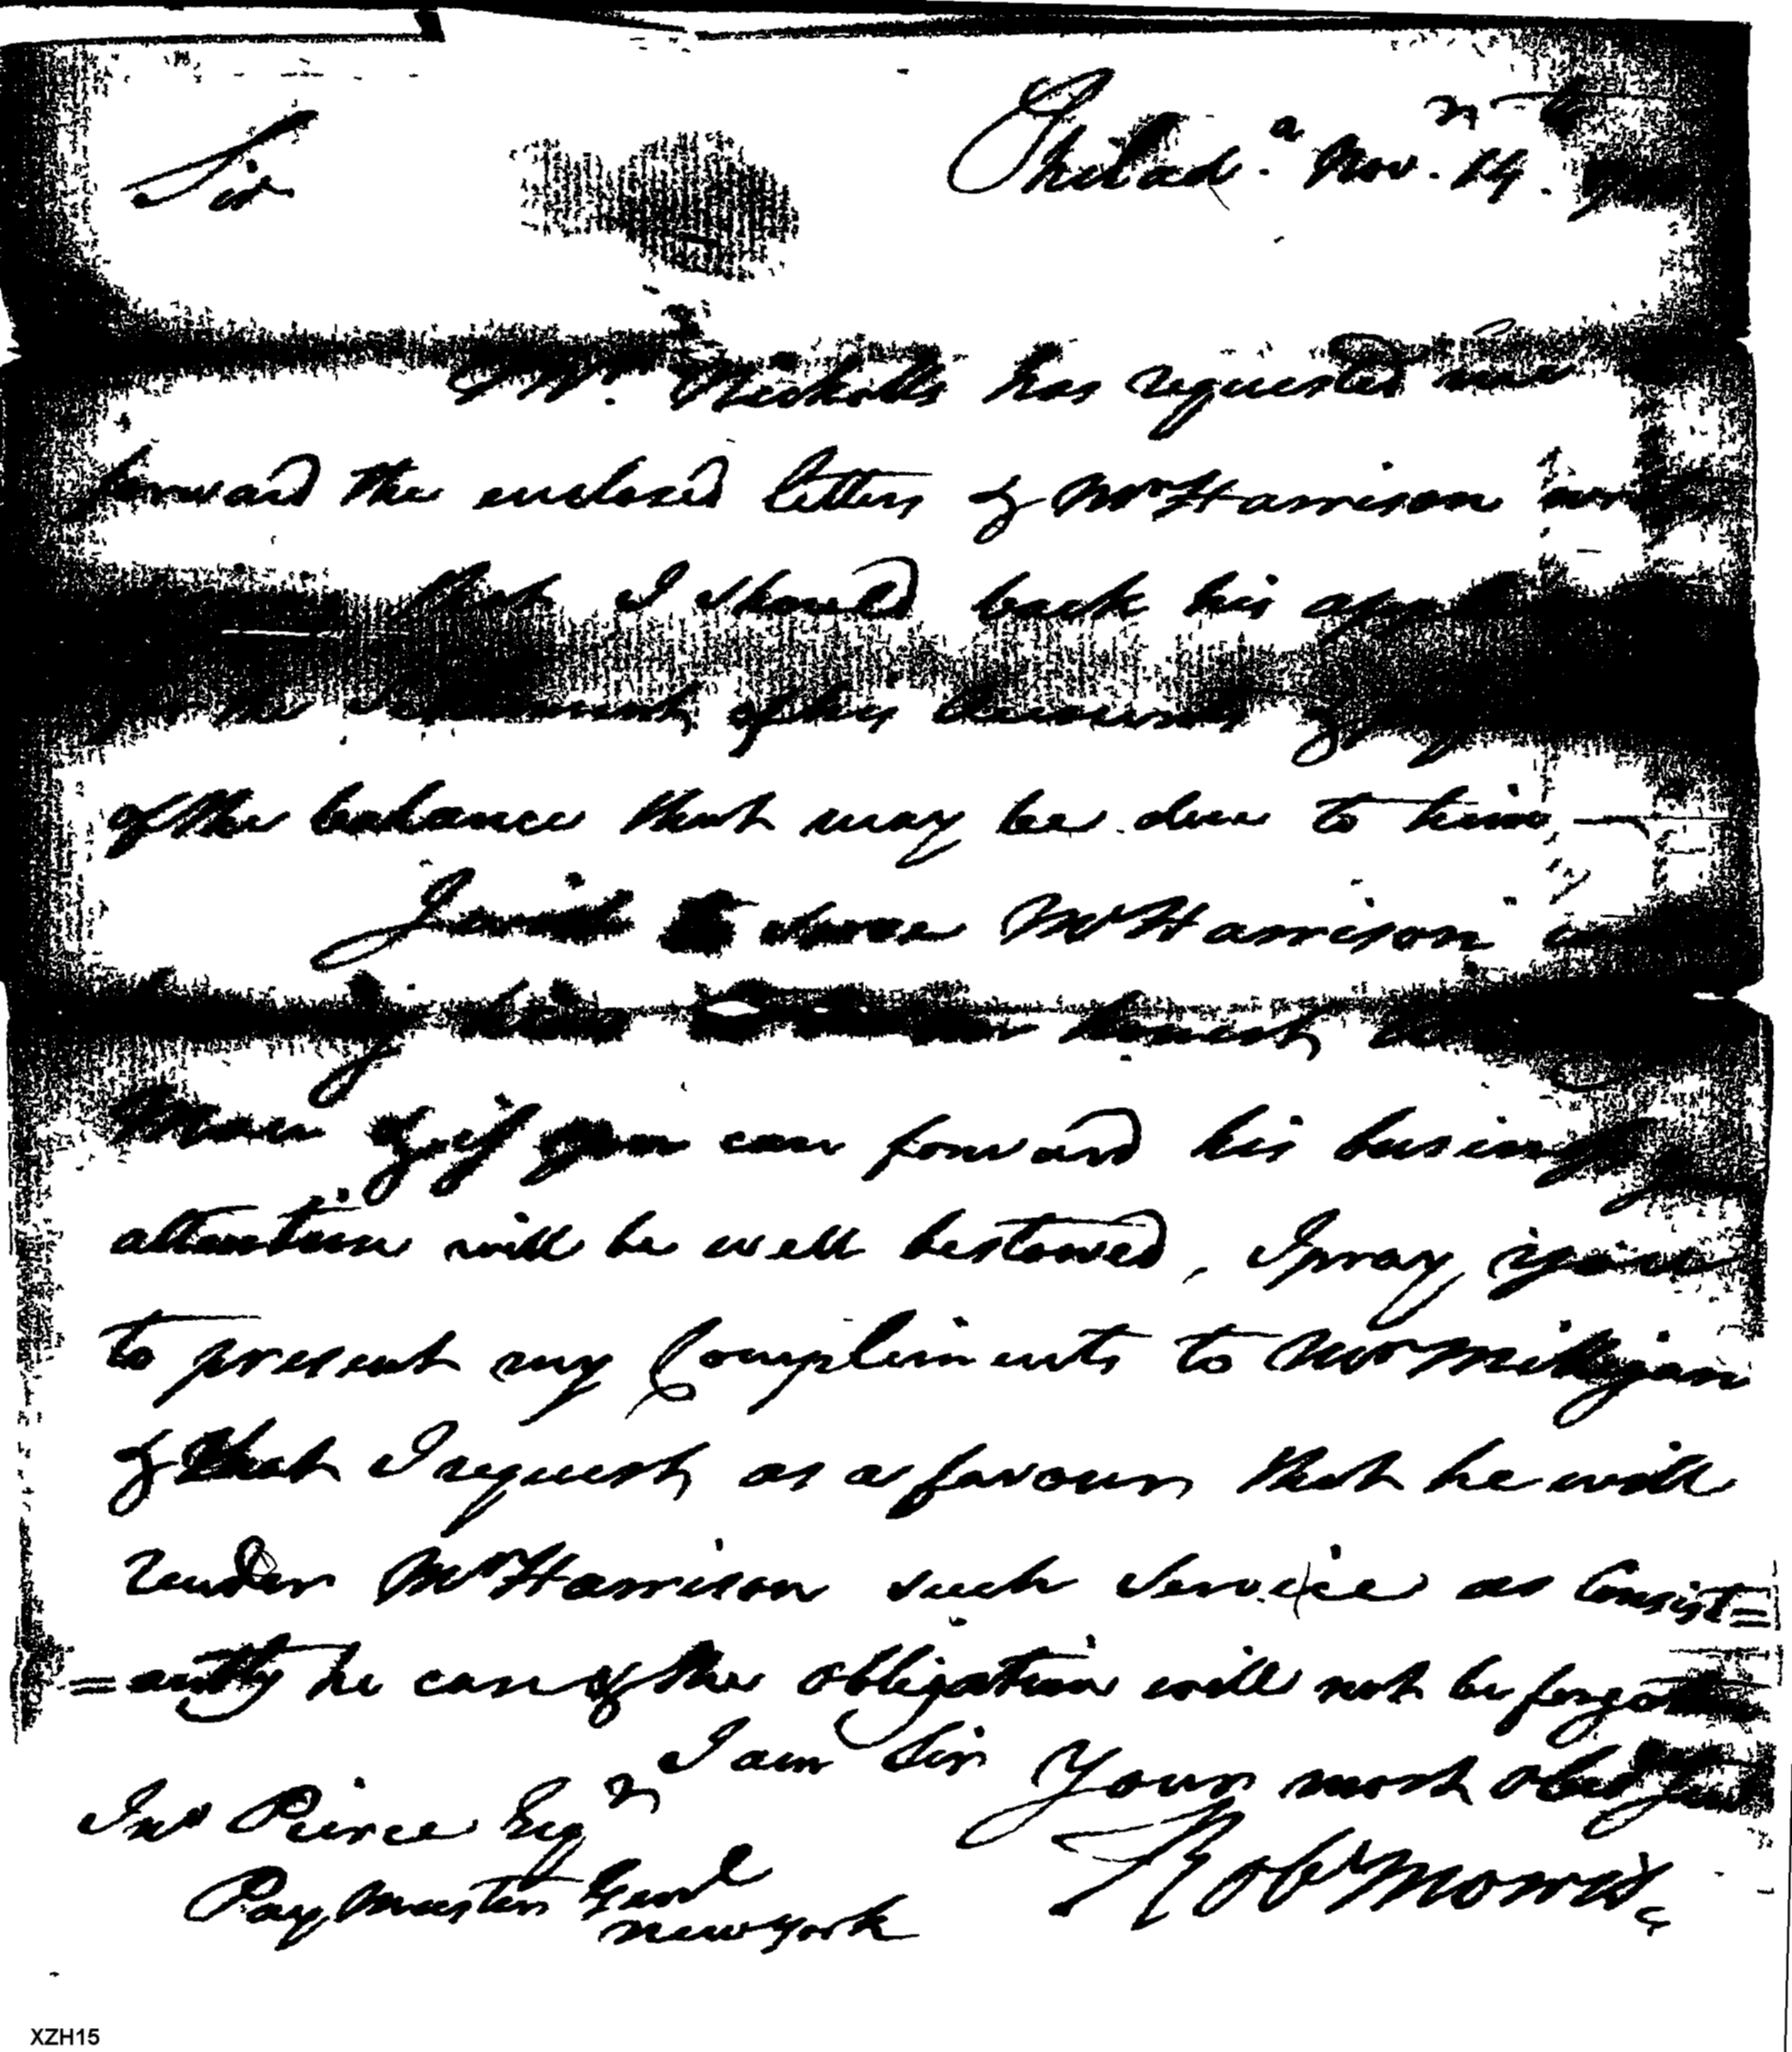 Philad.ª Nov. 14.
Sir
Mr. Nicholls has requested me
forward the enclosed letters of Mr Harrison
that I should back his
the settlement of his Accounts &
of the balance that may be due to him
I wish to serve Mr Harrison
him honest
Man & if you can forward his business
attention will be well bestowed, I pray you
to present my Compliments to Mr Milligan
& that I request as a favour that he will
render Mr Harrison such Service as Consist=
=antly he can & the obligation will not be forgotten
I am Sir Your most obed Serv
Jno Peirce Esqr
Robt Morris
Pay Master Genl
New York
XZH15